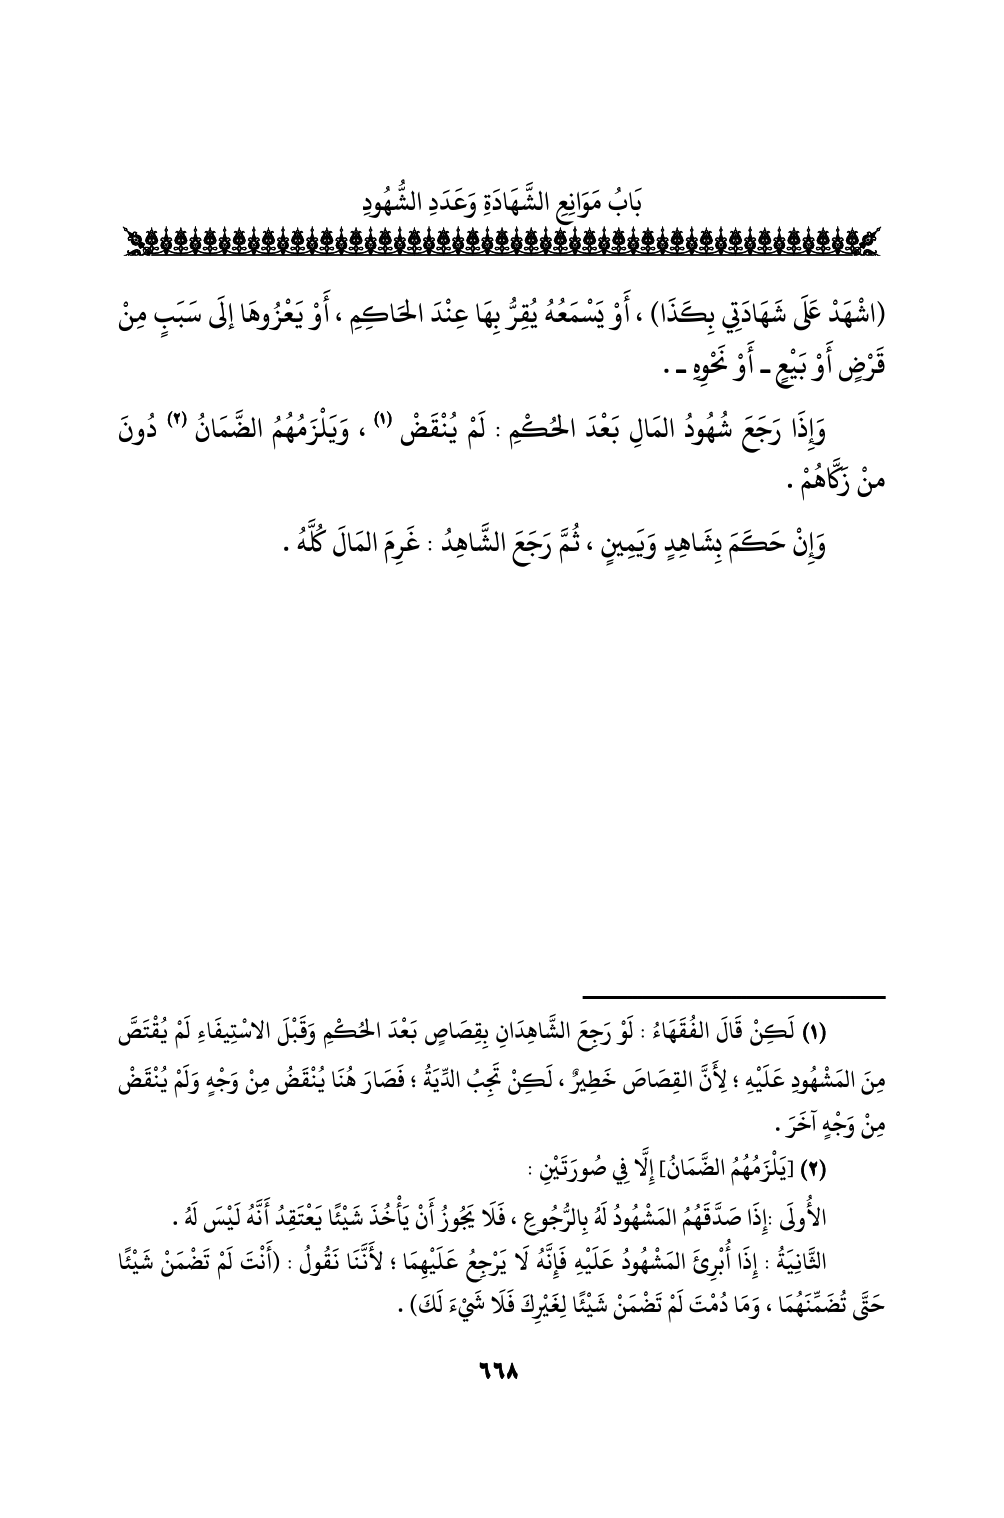 بَابُ مَوَانِعِ الشَّهَادَةِ وَعَدَدِ الشُّهُودِ
(اشْهَدْ عَلَى شَهَادَتِي بِكَذَا) ، أَوْ يَسْمَعُهُ يُقِرُّ بِهَا عِنْدَ الحَاكِمِ ، أَوْ يَعْزُوهَا إلَى سَبَبٍ مِنْ
قَرْضٍ أَوْ بَيْعٍ ـ أَوْ نَحْوِهِ ـ .
وَإِذَا رَجَعَ شُهُودُ المَالِ بَعْدَ الحُكْمِ : لَمْ يُنْقَضْ (١) ، وَيَلْزَمُهُمُ الضَّمَانُ (٢) دُونَ
منْ زَكَّاهُمْ .
وَإِنْ حَكَمَ بِشَاهِدٍ وَيَمِينٍ ، ثُمَّ رَجَعَ الشَّاهِدُ : غَرِمَ المَالَ كُلَّهُ .
(١) لَكِنْ قَالَ الفُقَهَاءُ : لَوْ رَجِعَ الشَّاهِدَانِ بِقِصَاصٍ بَعْدَ الحُكْمِ وَقَبْلَ الاسْتِيفَاءِ لَمْ يُقْتَصَّ
مِنَ المَشْهُودِ عَلَيْهِ ؛ لِأَنَّ القِصَاصَ خَطِيرٌ ، لَكِنْ تَجِبُ الدِّيَةُ ؛ فَصَارَ هُنَا يُنْقَضُ مِنْ وَجْهٍ وَلَمْ يُنْقَضْ
مِنْ وَجْهٍ آخَرَ .
(٢) [يَلْزَمُهُمُ الضَّمَانُ] إِلَّا فِي صُورَتَيْنِ :
الأُولَى :إِذَا صَدَّقَهُمُ المَشْهُودُ لَهُ بِالرُّجُوعِ ، فَلَا يَجُوزُ أَنْ يَأْخُذَ شَيْئًا يَعْتَقِدُ أَنَّهُ لَيْسَ لَهُ .
الثَّانِيَةُ : إِذَا أُبْرِئَ المَشْهُودُ عَلَيْهِ فَإِنَّهُ لَا يَرْجِعُ عَلَيْهِمَا ؛ لأَنَّنَا نَقُولُ : (أَنْتَ لَمْ تَضْمَنْ شَيْئًا
حَتَّى تُضَمِّنَهُمَا ، وَمَا دُمْتَ لَمْ تَضْمَنْ شَيْئًا لِغَيْرِكَ فَلَا شَيْءَ لَكَ) .
٦٦٨